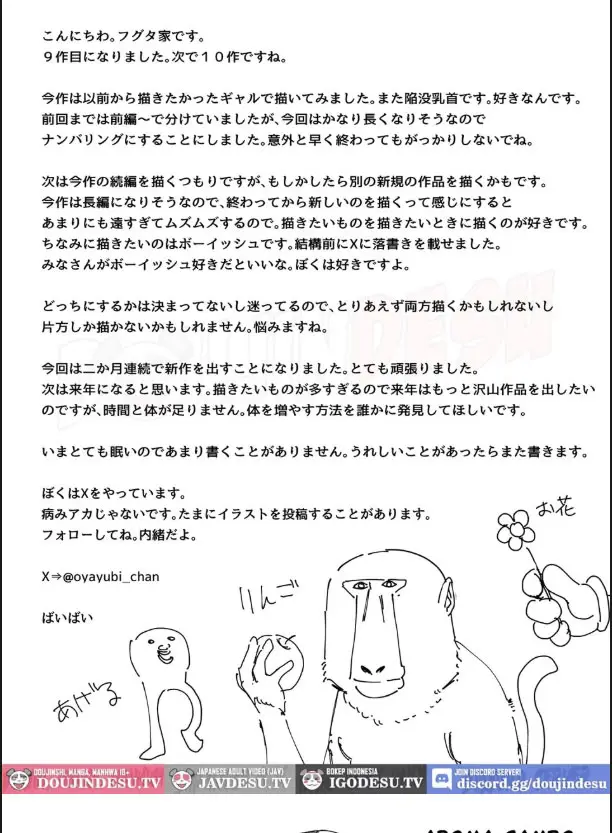 こんにちわ。フグタ家です。
９作目になりました。次で１０作ですね。
今作は以前から描きたかったギャルで描いてみました。また陥没乳首です。好きなんです。
前回までは前編～で分けていましたが、今回はかなり長くなりそうなので
ナンバリングにすることにしました。意外と早く終わってもがっかりしないでね。
次は今作の続編を描くつもりですが、もしかしたら別の新規の作品を描くかもです。
今作は長編になりそうなので、終わってから新しいのを描くって感じにすると
あまりにも遠すぎてムズムズするので。描きたいものを描きたいときに描くのが好きです。
ちなみに描きたいのはボーイッシュです。結構前にXに落書きを載せました。
みなさんがボーイッシュ好きだといいな。ぼくは好きですよ。
どっちにするかは決まってないし迷ってるので、とりあえず両方描くかもしれないし
片方しか描かないかもしれません。悩みますね。
今回は二か月連続で新作を出すことになりました。とても頑張りました。
次は来年になると思います。描きたいものが多すぎるので来年はもっと沢山作品を出したい
のですが、時間と体が足りません。体を増やす方法を誰かに発見してほしいです。
いまとても眠いのであまり書くことがありません。うれしいことがあったらまた書きます。
ぼくはXをやっています。
病みアカじゃないです。たまにイラストを投稿することがあります。
フォローしてね。内緒だよ。
X⇒@oyayubi_chan
ばいばい
お花
りんご
あげる
DOUJINSHI, MANGA, MANHWA 18+
DOUJINDESU.TV
JAPANESE ADULT VIDEO (JAV)
JAVDESU.TV
BOKEP INDONESIA
IGODESU.TV
JOIN DISCORD SERVER!
discord.gg/doujindesu